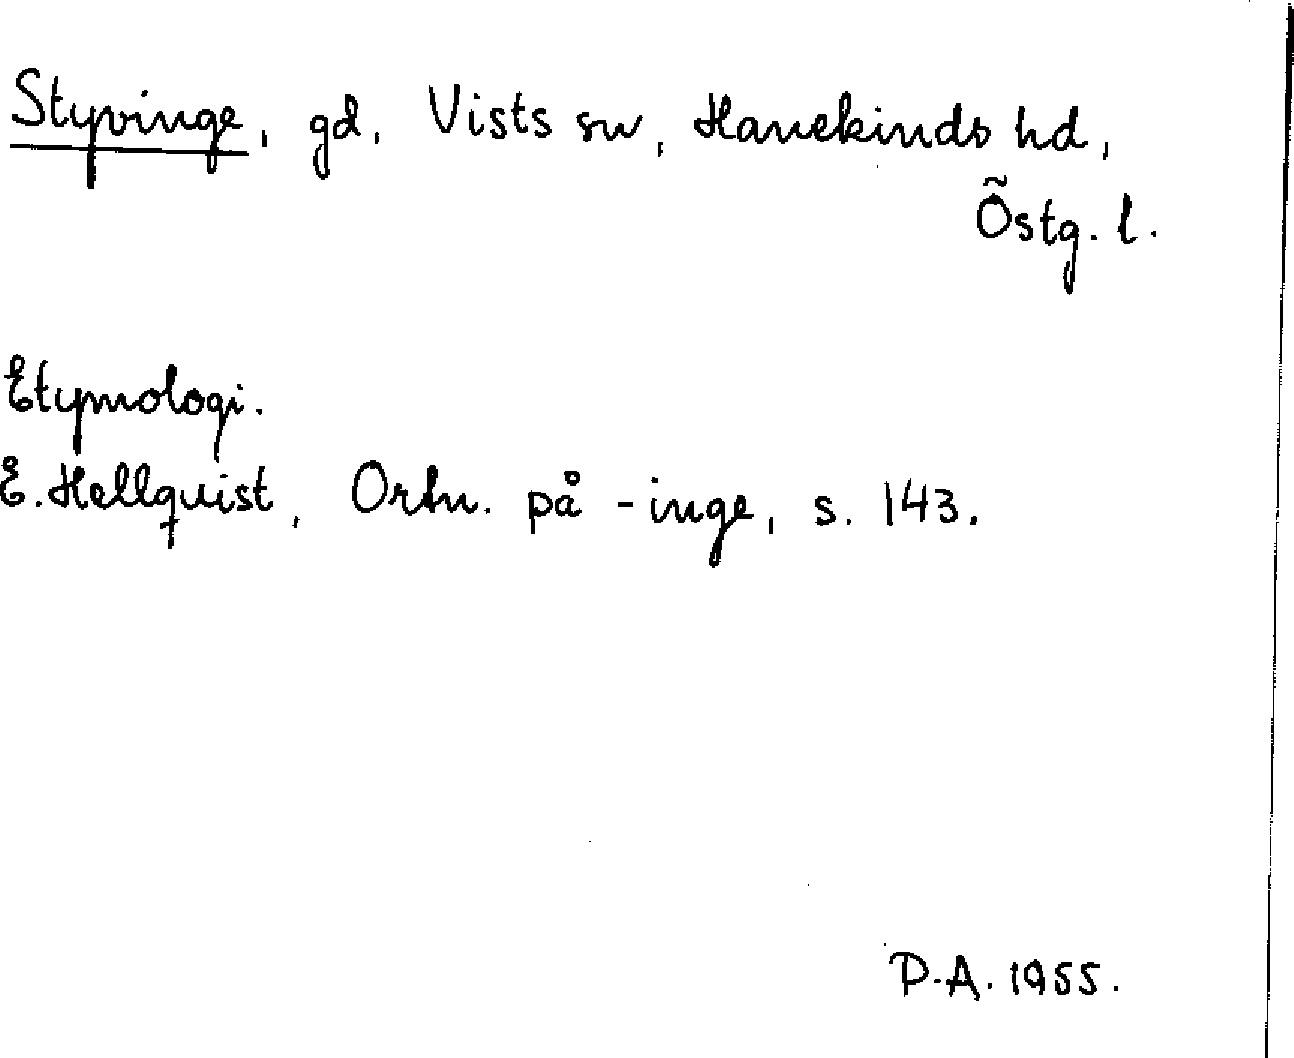 Styvinge, gd, Vists sn, Hanekinds hd,
Östg. l.
Etymologi.
E. Hellquist, Ortn. på -inge, s. 143.
P.A. 1955.